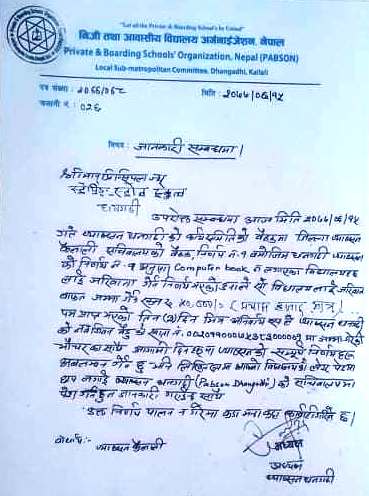 "Let all the Private & Boarding School's be United"
निजी तथा आवासीय विद्यालय अर्गनाईजेशन, नेपाल
Private & Boarding Schools' Organization, Nepal (PABSON)
Local Sub-metropolitan Committee, Dhangadhi, Kailali
पत्र संख्या : २०७७/०७८
चलानी नं. : ०२६
मिति : २०७७/०६/१५
विषय : जानकारी सम्बन्धमा।
श्रीमान प्रिन्सिपल ज्यू
धनगढी
उपरोक्त सम्बन्धमा आज मिति २०७७/०६/१५
गते प्याब्सन धनगढी को कार्य समितिको बैठकमा जिल्ला प्याब्सन
कैलाली सचिवालयको बैठक, निर्णय नं. १ बमोजिम धनगढी प्याब्सन
को निर्णय नं. १ अनुसार Computer book न लगाएका विद्यालयहरू
लाई जरिवाना गर्ने निर्णय भएको हुनाले सो विद्यालयलाई जरिवाना
वापत जम्मा गर्ने रकम रू ५०,०००/= (पचास हजार मात्र)
पत्र प्राप्त भएको मितिले (२) दिन भित्र अनिवार्य रूपले प्याब्सन धनगढी
को बैंक खाता नं. मा जम्मा गरेको
भौचर का साथ आगामी दिनहरूमा प्याब्सनको सम्पूर्ण निर्णयहरू
अवलम्बन गर्ने छु भनि लिखित रूपमा आफ्नो विद्यालयको लेटर प्याडमा
छाप लगाई प्याब्सन धनगढी (Pabson Dhangadhi) को सचिवालयमा
पेश गर्नुहुन जानकारी गराइन्छ साथै
उक्त निर्णय पालना न गरेमा कडा भन्दा कडा कारवाही गरिने छ।
बोधार्थ:-
प्याब्सन कैलाली
अध्यक्ष
प्याब्सन धनगढी